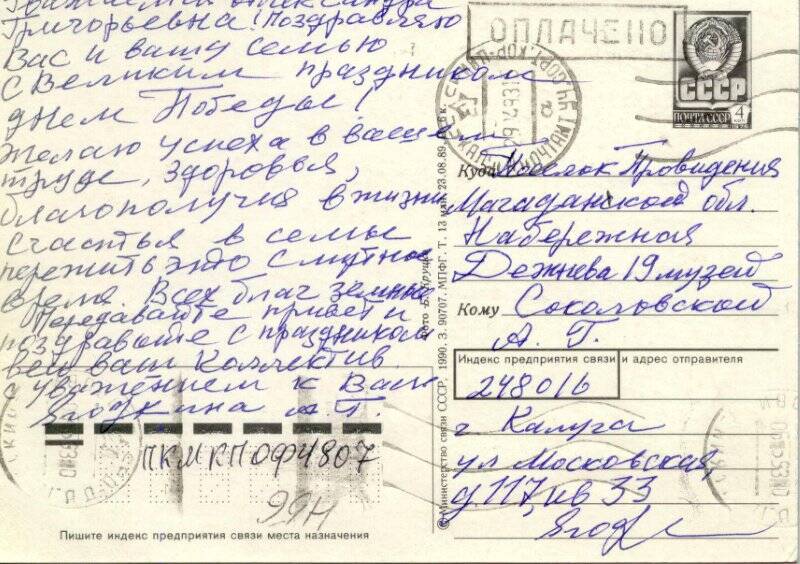 Уважаемая Александра
Григорьевна! Поздравляю
Вас и вашу семью
с Великим праздником
днем Победы!
Желаю успеха в вашем
труде, здоровья,
благополучия в жизни
счастья в семье
пережить это смутное
время. Всех благ земных
Передавайте привет и
поздравьте с праздником
весь ваш коллектив.
с уважением к Вам
А. Т.
ПКМКПОФ4807
99Н
Пишите индекс предприятия связи места назначения
© Министерство связи СССР, 1990. З. 90707. МПФГ. Т. 13 млн. 23.08.89.
ОПЛАЧЕНО
СССР
ПОЧТА СССР 4
Куда Поселок Провидения
Магаданской обл.
Набережная
Дежнева 19 музей
Кому Соколовской
А. Г.
Индекс предприятия связи и адрес отправителя
248016
г Калуга
ул Московская,
д. 117, кв 33